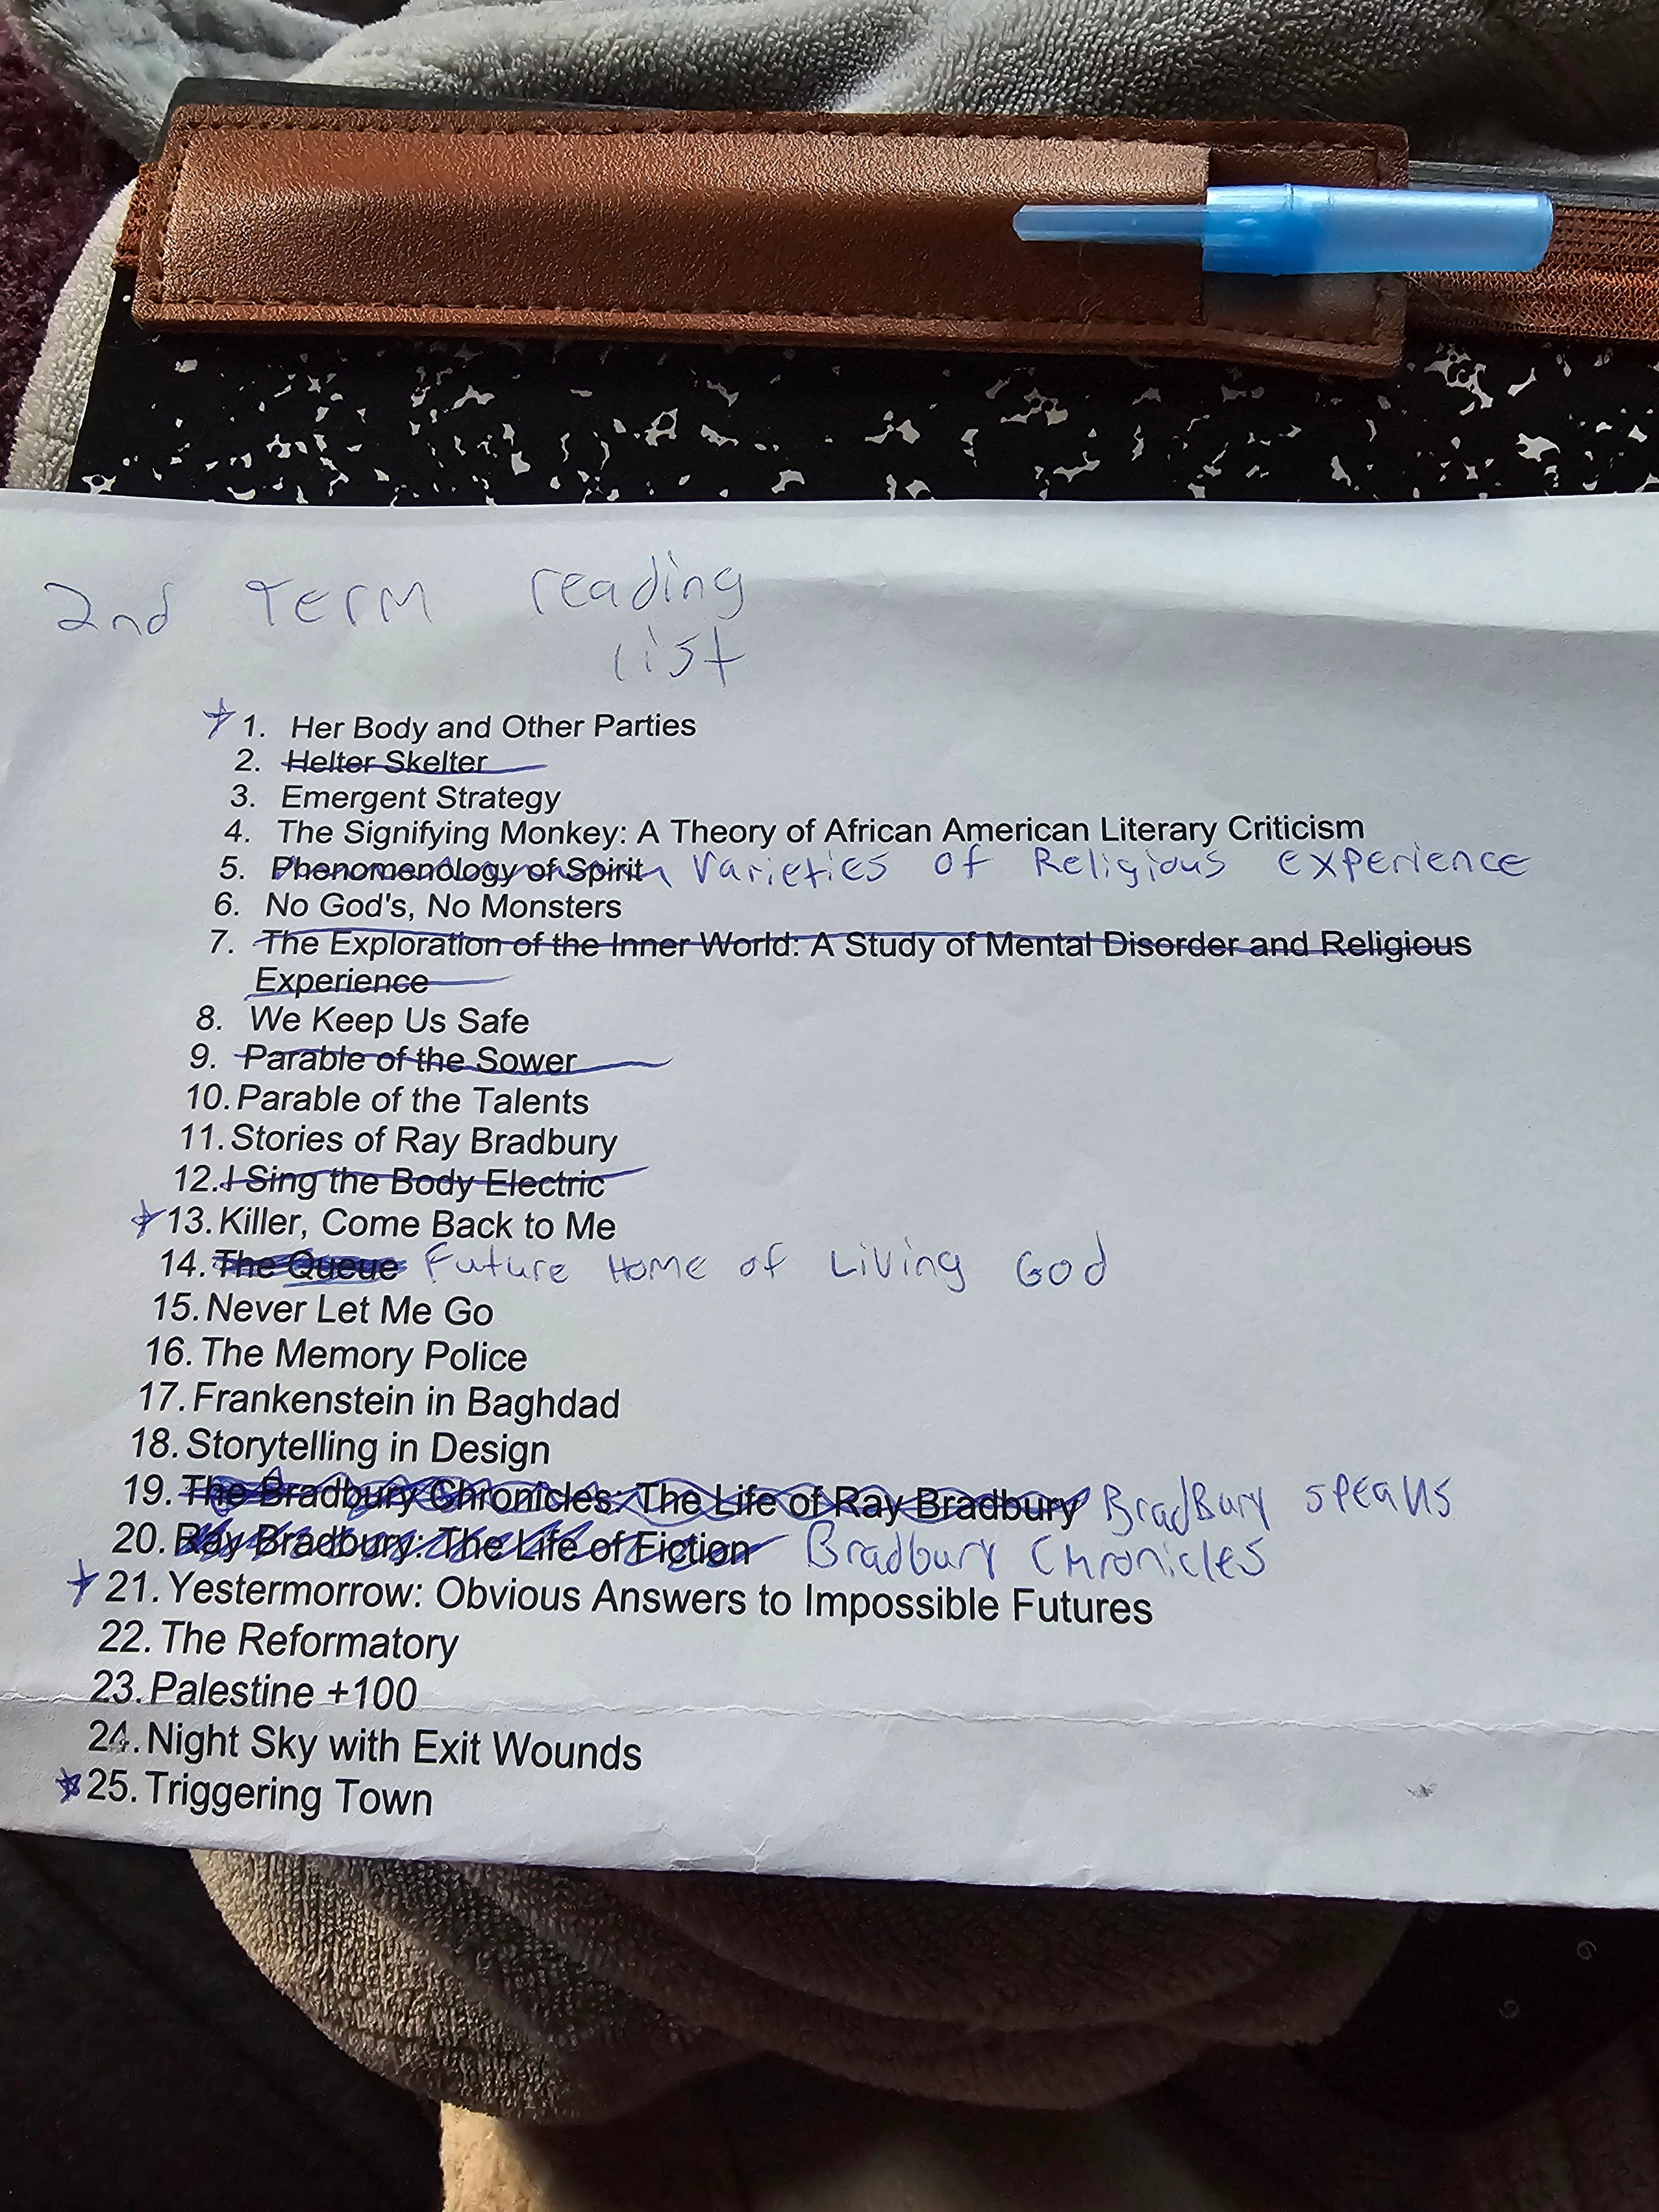 2nd Term reading
list
1. Her Body and Other Parties
2. Helter Skelter
3. Emergent Strategy
4. The Signifying Monkey: A Theory of African American Literary Criticism
5. Phenomenology of Spirit Varieties of Religious experience
6. No God's, No Monsters
7. The Exploration of the Inner World: A Study of Mental Disorder and Religious
Experience
8. We Keep Us Safe
9. Parable of the Sower
10. Parable of the Talents
11. Stories of Ray Bradbury
12. I Sing the Body Electric
13. Killer, Come Back to Me
14. The Queue Future Home of Living God
15. Never Let Me Go
16. The Memory Police
17. Frankenstein in Baghdad
18. Storytelling in Design
19. The Bradbury Chronicles: The Life of Ray Bradbury BradBury speaks
20. Ray Bradbury: The Life of Fiction Bradbury Chronicles
21. Yestermorrow: Obvious Answers to Impossible Futures
22. The Reformatory
23. Palestine +100
24. Night Sky with Exit Wounds
25. Triggering Town